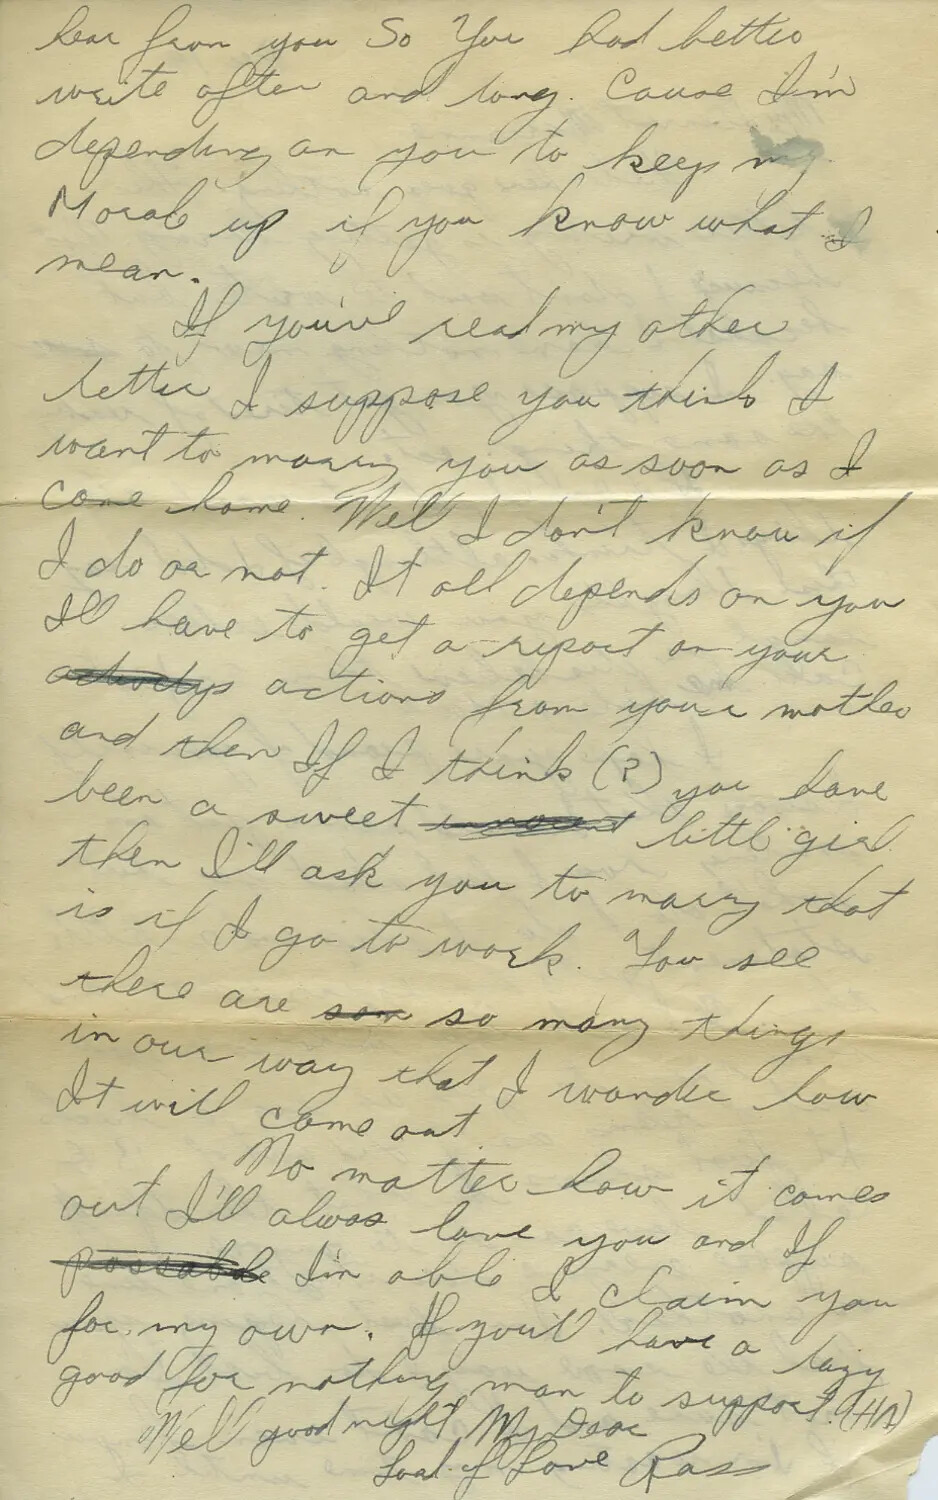 hear from you So You had better
write often and long. Cause I'm
depending on you to keep my
Moral up if you know what I
mean.
If you've read my other
letter I suppose you think I
want to marry you as soon as I
come home. Well I don't know if
I do or not. It all depends on you
Ill have to get a report on your
actions from your mother
and then If I think (?) you have
been a sweet innocent little girl
then I'll ask you to marry that
is if I go to work. You see
there are som so many things
in our way that I wonder how
It will come out
No matter how it comes
out I'll alwas love you and If
possable I'm able I claim you
for my own. If you'll have a lazy
good for nothing man to support. (HA)
Well good night My Dear
Love